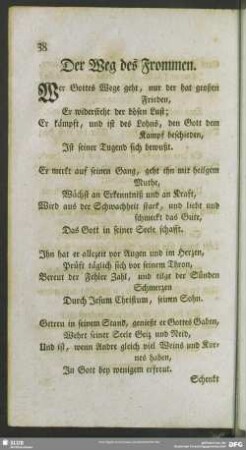 38
Der Weg des Frommen.
Wer Gottes Wege geht, nur der hat großen
Frieden,
Er widersteht der bösen Lust;
Er kämpft, und ist des Lohns, den Gott dem
Kampf beschieden,
Ist seiner Tugend sich bewußt.
Er merkt auf seinen Gang, geht ihn mit heilgem
Muthe,
Wächst an Erkenntniß und an Kraft,
Wird aus der Schwachheit stark, und liebt und
schmeckt das Gute,
Das Gott in seiner Seele schafft.
Ihn hat er allezeit vor Augen und im Herzen,
Prüft täglich sich vor seinem Thron,
Bereut der Fehler Zahl, und tilgt der Sünden
Schmerzen
Durch Jesum Christum, seinen Sohn.
Getreu in seinem Stand, genießt er Gottes Gaben,
Wehrt seiner Seele Geiz und Neid,
Und ist, wenn Andre gleich viel Weins und Kor-
nes haben,
In Gott bey wenigem erfreut.
Schenkt
SLUB
DFG